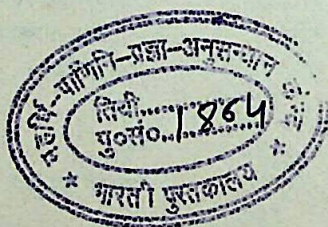 महर्षि-पाणिनि-प्रज्ञा-अनुसन्धान
तिथी..............
पु०सं०..1864
* भारती पुस्तकालय *